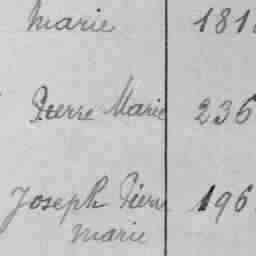 Marie 181
Pierre Marie 236
Joseph Pierre 196
Marie